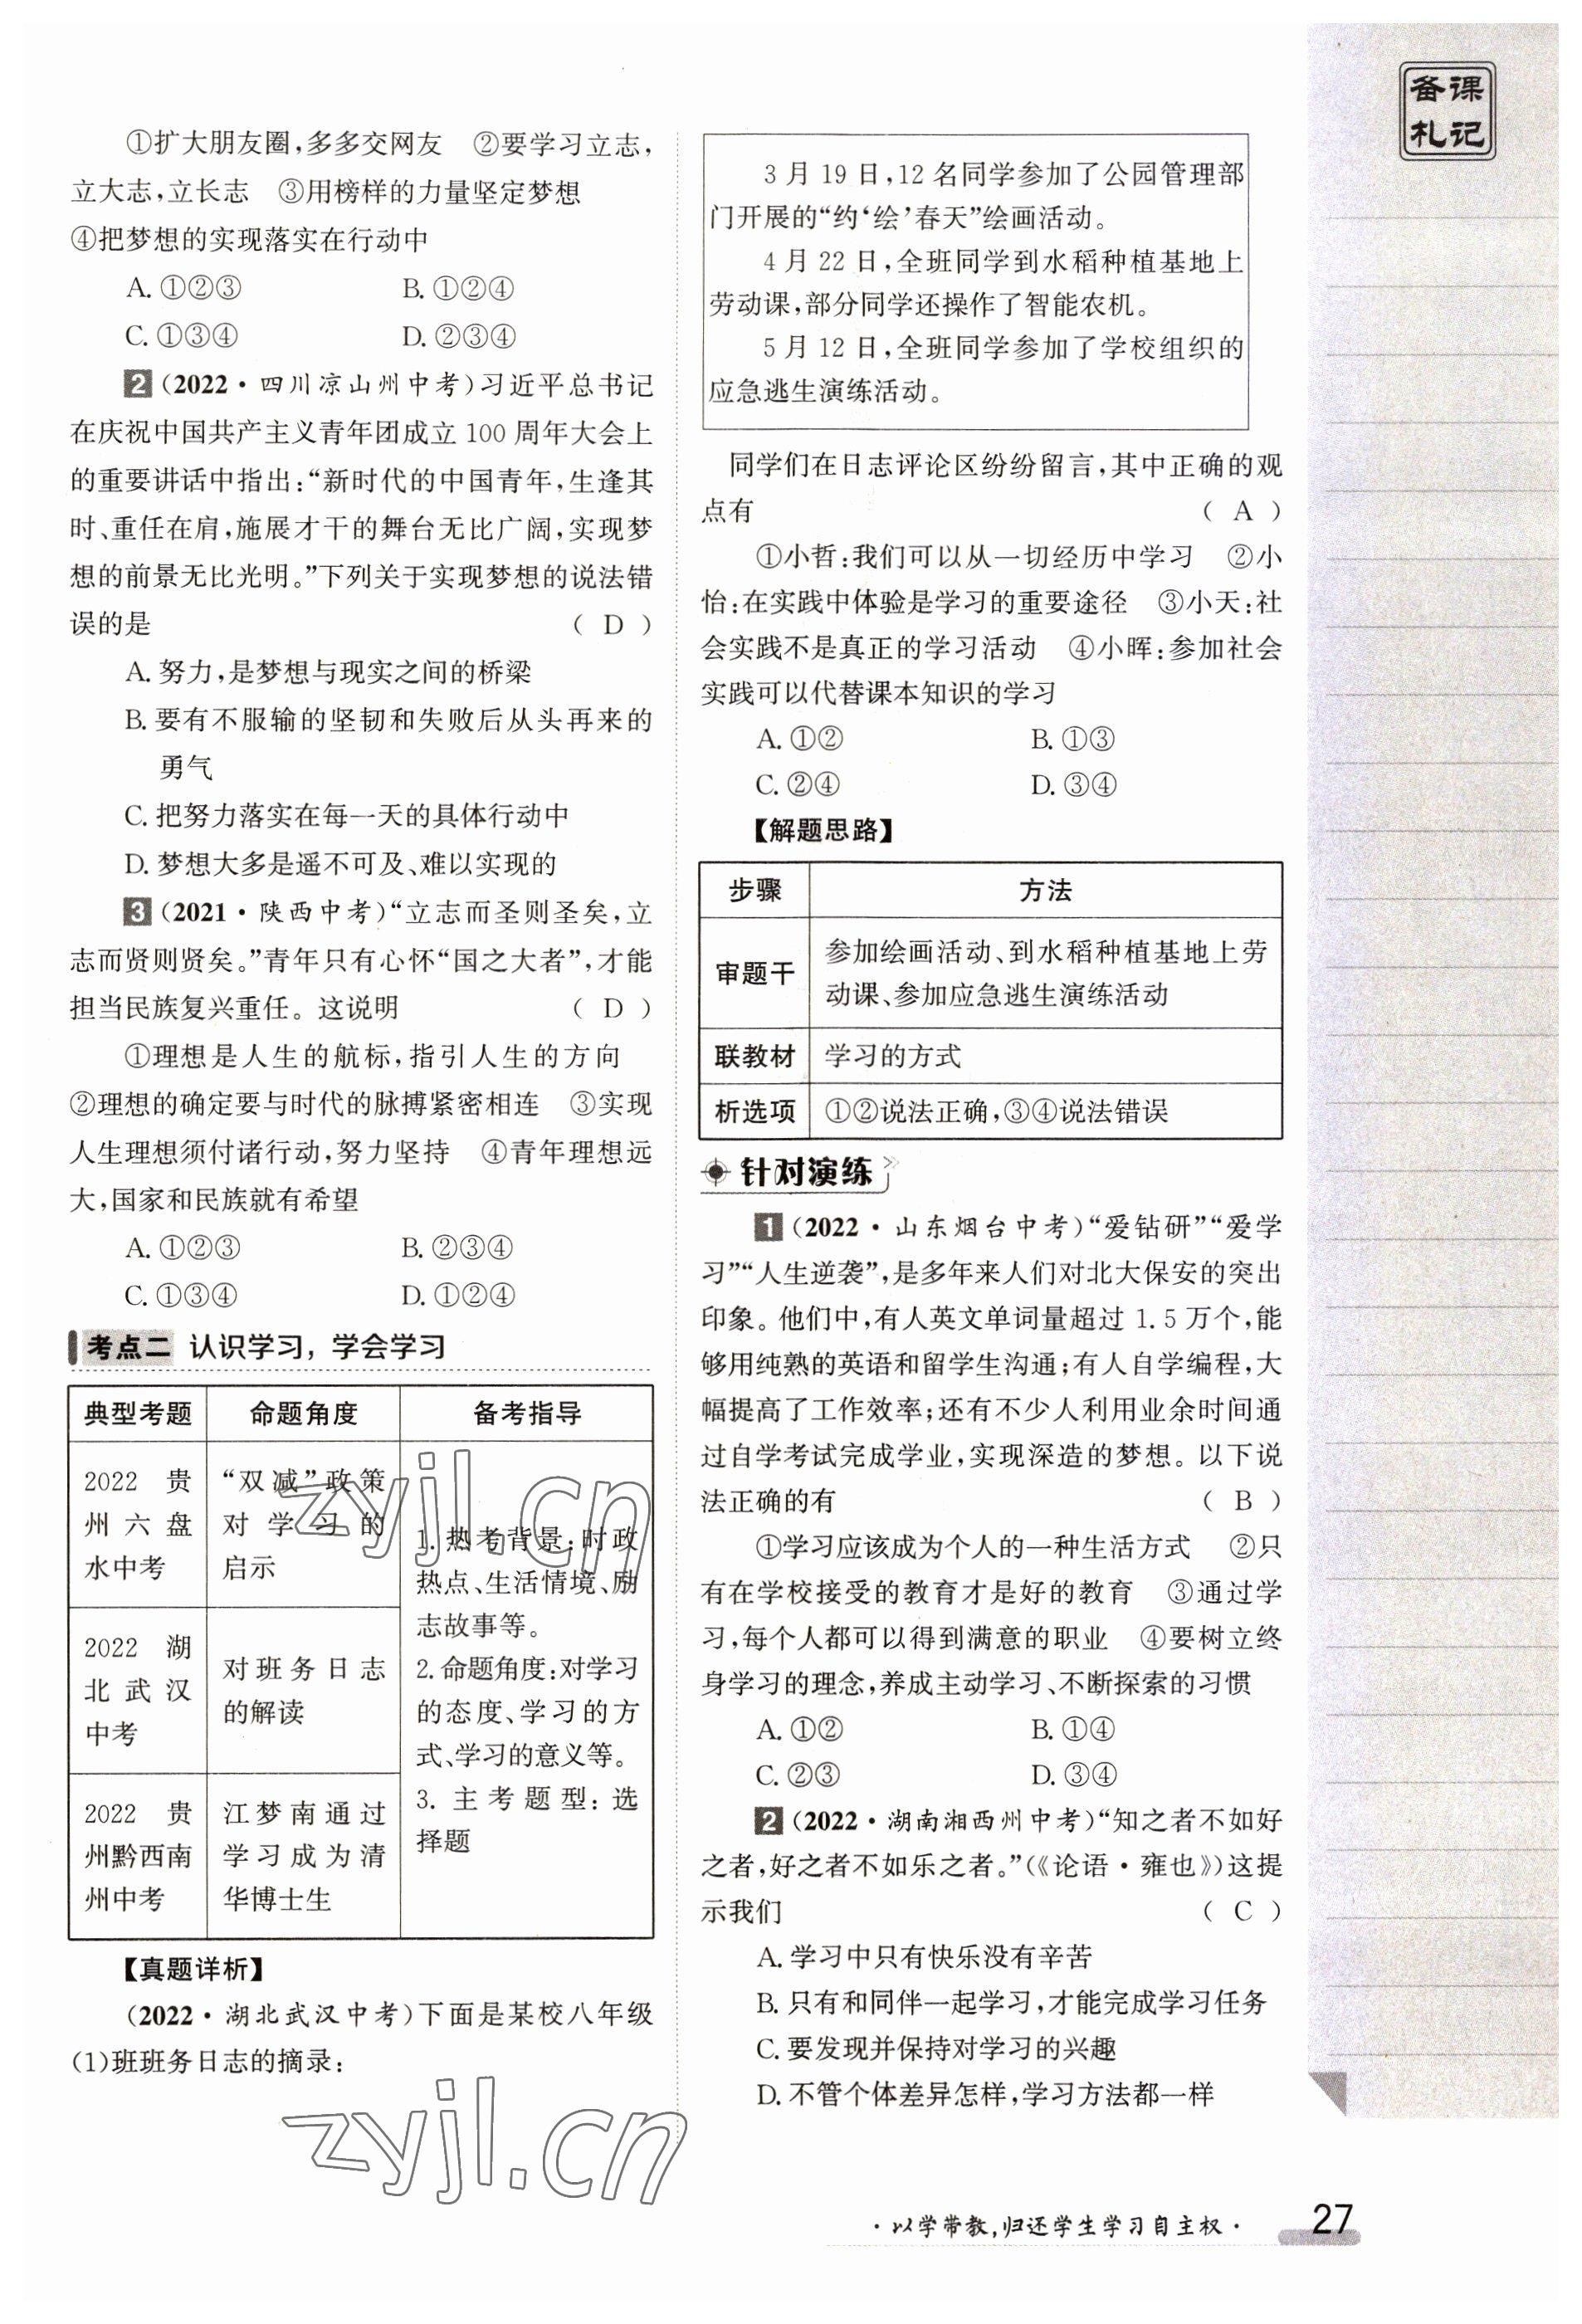 ①扩大朋友圈,多多交网友　②要学习立志,
立大志,立长志　③用榜样的力量坚定梦想
④把梦想的实现落实在行动中
A. ①②③　B. ①②④
C. ①③④　D. ②③④
2 (2022·四川凉山州中考)习近平总书记
在庆祝中国共产主义青年团成立 100 周年大会上
的重要讲话中指出:“新时代的中国青年,生逢其
时、重任在肩,施展才干的舞台无比广阔,实现梦
想的前景无比光明。”下列关于实现梦想的说法错
误的是　( D )
A. 努力,是梦想与现实之间的桥梁
B. 要有不服输的坚韧和失败后从头再来的
勇气
C. 把努力落实在每一天的具体行动中
D. 梦想大多是遥不可及、难以实现的
3 (2021·陕西中考)“立志而圣则圣矣,立
志而贤则贤矣。”青年只有心怀“国之大者”,才能
担当民族复兴重任。这说明　( D )
①理想是人生的航标,指引人生的方向
②理想的确定要与时代的脉搏紧密相连　③实现
人生理想须付诸行动,努力坚持　④青年理想远
大,国家和民族就有希望
A. ①②③　B. ②③④
C. ①③④　D. ①②④
考点二　认识学习，学会学习
典型考题　命题角度　备考指导
2022 贵
州六盘
水中考
“双减”政策
对学习的
启示
2022 湖
北武汉
中考
对班务日志
的解读
2022 贵
州黔西南
州中考
江梦南通过
学习成为清
华博士生
1. 热考背景:时政
热点、生活情境、励
志故事等。
2. 命题角度:对学习
的态度、学习的方
式、学习的意义等。
3. 主考题型:选
择题
【真题详析】
(2022·湖北武汉中考)下面是某校八年级
(1)班班务日志的摘录:
3 月 19 日,12 名同学参加了公园管理部
门开展的“约‘绘’春天”绘画活动。
4 月 22 日,全班同学到水稻种植基地上
劳动课,部分同学还操作了智能农机。
5 月 12 日,全班同学参加了学校组织的
应急逃生演练活动。
同学们在日志评论区纷纷留言,其中正确的观
点有　( A )
①小哲:我们可以从一切经历中学习　②小
怡:在实践中体验是学习的重要途径　③小天:社
会实践不是真正的学习活动　④小晖:参加社会
实践可以代替课本知识的学习
A. ①②　B. ①③
C. ②④　D. ③④
【解题思路】
步骤　方法
审题干　参加绘画活动、到水稻种植基地上劳
动课、参加应急逃生演练活动
联教材　学习的方式
析选项　①②说法正确,③④说法错误
针对演练
1 (2022·山东烟台中考)“爱钻研”“爱学
习”“人生逆袭”,是多年来人们对北大保安的突出
印象。他们中,有人英文单词量超过 1.5 万个,能
够用纯熟的英语和留学生沟通;有人自学编程,大
幅提高了工作效率;还有不少人利用业余时间通
过自学考试完成学业,实现深造的梦想。以下说
法正确的有　( B )
①学习应该成为个人的一种生活方式　②只
有在学校接受的教育才是好的教育　③通过学
习,每个人都可以得到满意的职业　④要树立终
身学习的理念,养成主动学习、不断探索的习惯
A. ①②　B. ①④
C. ②③　D. ③④
2 (2022·湖南湘西州中考)“知之者不如好
之者,好之者不如乐之者。”(《论语·雍也》)这提
示我们　( C )
A. 学习中只有快乐没有辛苦
B. 只有和同伴一起学习,才能完成学习任务
C. 要发现并保持对学习的兴趣
D. 不管个体差异怎样,学习方法都一样
备课
札记
zyjl.cn
zyjl.cn
·以学带教,归还学生学习自主权·
27